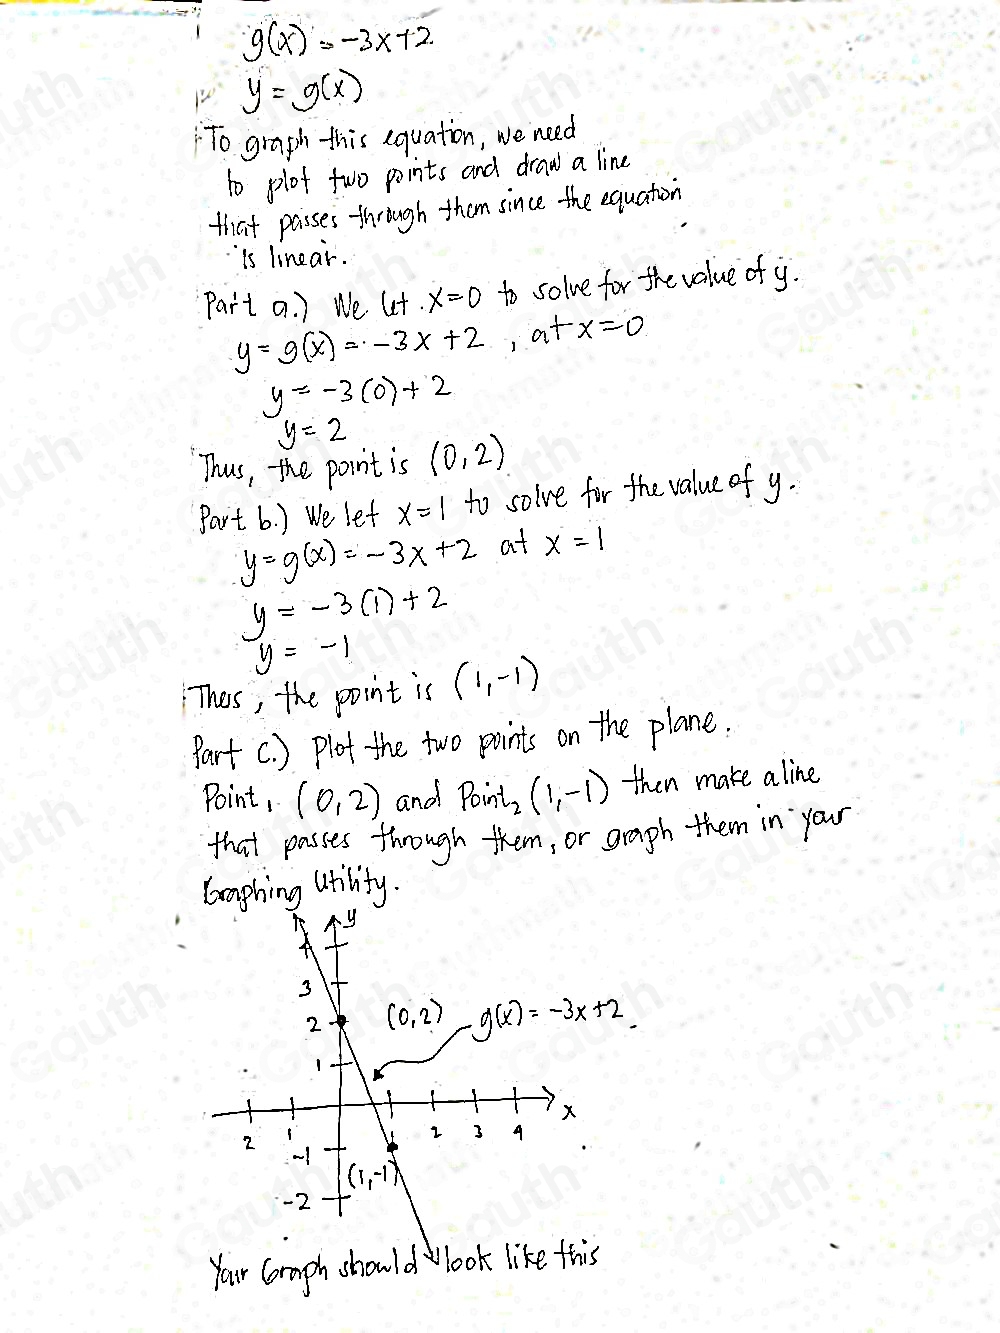 g(x) = -3x+2
y = g(x)
To graph this equation, we need
to plot two points and draw a line
that passes through them since the equation
is linear.
Part a.) We let x=0 to solve for the value of y.
y = g(x) = -3x+2, at x=0
y = -3(0)+2
y = 2
Thus, the point is (0,2)
Part b.) We let x=1 to solve for the value of y.
y = g(x) = -3x+2 at x=1
y = -3(1)+2
y = -1
Thus, the point is (1,-1)
Part C.) Plot the two points on the plane.
Point₁ (0,2) and Point₂ (1,-1) then make a line
that passes through them, or graph them in your
Graphing Utility.
y
4
3
2
(0,2)
g(x) = -3x+2
1
x
2 1 2 3 4
-1
(1,-1)
-2
Your Graph should look like this
Gauth